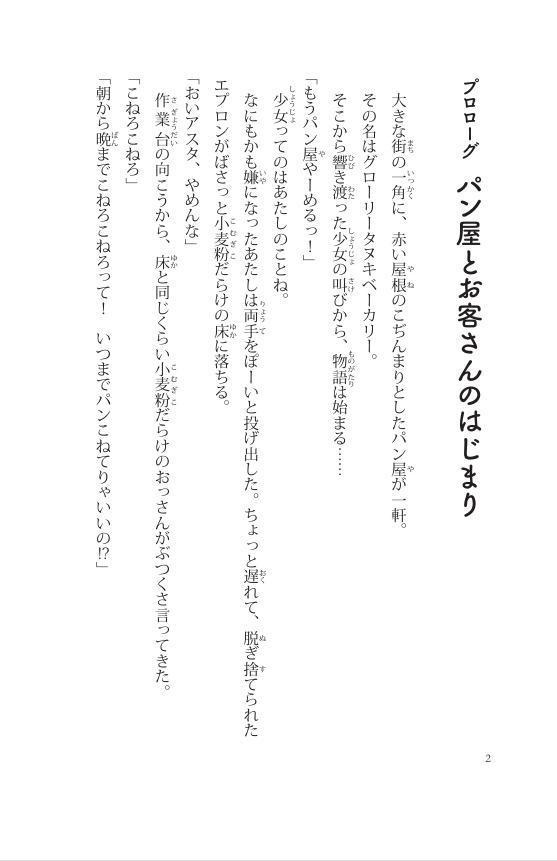 プロローグ　パン屋とお客さんのはじまり
大きな街の一角に、赤い屋根のこぢんまりとしたパン屋が一軒。
その名はグローリータヌキベーカリー。
そこから響き渡った少女の叫びから、物語は始まる……
「もうパン屋やーめるっ！」
少女ってのはあたしのことね。
なにもかも嫌になったあたしは両手をぽーいと投げ出した。ちょっと遅れて、脱ぎ捨てられた
エプロンがばさっと小麦粉だらけの床に落ちる。
「おいアスタ、やめんな」
作業台の向こうから、床と同じくらい小麦粉だらけのおっさんがぶつくさ言ってきた。
「こねろこねろ」
「朝から晩までこねろこねろって！　いつまでパンこねてりゃいいの!?」
2